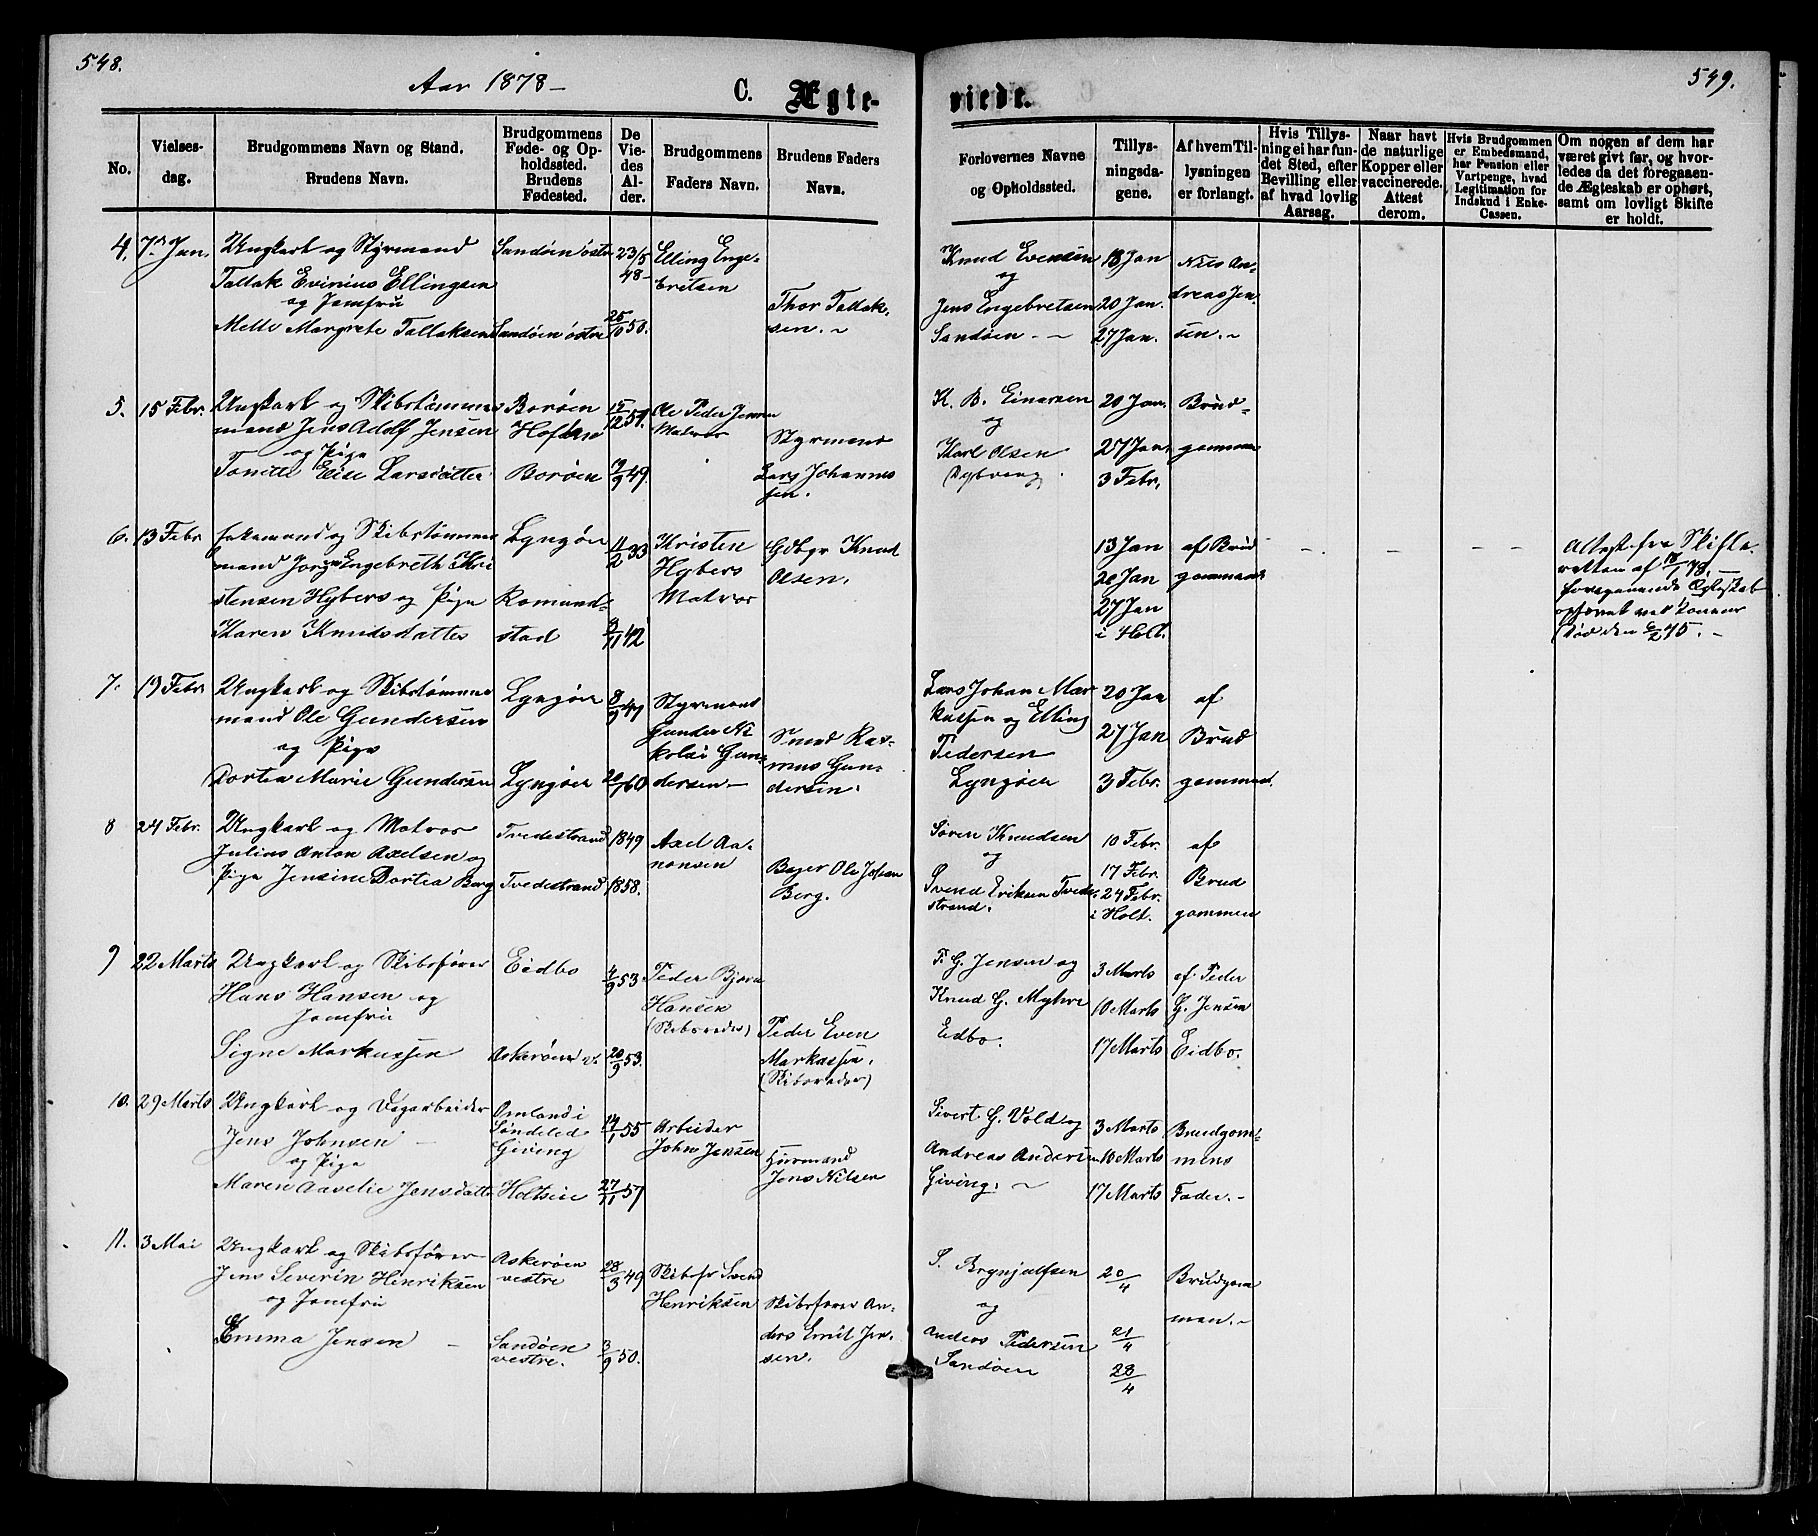 548.
Aar 1878 –
C. Ægte-
viede.
549.
No.
Vielses-
dag.
Brudgommens Navn og Stand.
Brudens Navn.
Brudgommens
Føde- og Op-
holdssted.
Brudens
Fødested.
De
Vie-
des
Al-
der.
Brudgommens
Faders Navn.
Brudens Faders
Navn.
Forlovernes Navne
og Opholdssted.
Tillys-
ningsda-
gene.
Af hvem Til-
lysningen
er forlangt.
Hvis Tillys-
ning ei har fun-
det Sted, efter
Bevilling eller
af hvad lovlig
Aarsag.
Naar havt
de naturlige
Kopper eller
vaccinerede.
Attest
derom.
Hvis Brudgommen
er Embedsmand,
har Pension eller
Vartpenge, hvad
Legitimation for
Indskud i Enke-
Cassen.
Om nogen af dem har
været givt før, og hvor-
ledes da det foregaaen-
de Ægteskab er ophørt,
samt om lovligt Skifte
er holdt.
4. 7. Jan.
Ungkarl og Styrmand
Tallak Evinius Ellingsen
og Jomfru
Mette Margrete Tallaksen
Sandøen østre
Sandøen østre
23/5
48 –
25/10 50.
Elling Enge-
britsen
Thor Tallak-
sen. –
Knud Evensen
og
Jens Engebretsen
Sandøen – –
13 Jan
20 Jan.
27 Jan.
Nils An-
dreas Jen-
sen. –
5. 15 Febr.
Ungkarl og Skibstømmer
mand Jens Adolf Jensen
og Pige
Tonette Elise Larsdatter
Borøen
Borøen
15/12 51.
9/9 49.
Ole Peder Jensen
Matros
Styrmand
Lars Johannes
sen.
K. B. Einersen
og
Karl Olsen
Dybvaag
20 Jan.
27 Jan.
3 Febr.
Brud-
gommen
6. 13 Febr
Enkemand og Skibstømmer
mand Jørgen Engebreth Kri
stensen Hybers og Pige
Karen Knudsdatter
Lyngøen
Romund-
stad
11/2 33
3/11 42
Kristen
Hybers
Matros
Gdbgr Knud
Olsen.
13 Jan
20 Jan
27 Jan
i Holt.
af Brud
gommen
Attest fra Skifte-
retten af 18/1 78. –
foregaaende Ægteskab
ophævet ved Konens
Død den 6/2 75. –
7. 19 Febr.
Ungkarl og Skibstømmer
mand Ole Gundersen
og Pige
Dortea Marie Gundersen
Lyngøen
Lyngøen
8/9 47
20/1 60
Styrmand
Gunder Ni-
kolai Gun-
dersen –
Smed Ras-
mus Gun-
dersen.
Lars Johan Mar
kussen og Elling
Pedersen
Lyngøen
20 Jan
27 Jan
3 Febr.
af
Brud
gommen.
8 24 Febr.
Ungkarl og Matros
Julius Anton Axelsen og
Pige Jensine Dortea Berg
Tvedestrand
Tvedestrand
1849
1858.
Axel Aa-
nonsen
Bager Ole Johan
Berg.
Søren Knudsen
og
Svend Eriksen Tvede-
strand.
10 Febr.
17 Febr.
24 Febr.
i Holt.
af
Brud
gommen
9 22 Marts
Ungkarl og Skibsfører
Hans Hansen og
Jomfru
Signe Markussen
Eidbo
Askerøen v.
4/9 53
20/9 53.
Peder Bjorn
Hansen
(Skibsreder)
Peder Even
Markussen.
(Skibsreder)
P. G. Jensen og
Knud G. Myhre
Eidbo.
3 Marts
10 Marts
17 Marts
af Peder
G. Jensen
Eidbo.
10. 29 Marts
Ungkarl og Dagarbeider
Jens Johnsen –
og Pige
Maren Aaselie Jensdatter
Omland i
Søndeled
Giving
Holtsøen
14/1 55
27/11 57
Arbeider
John Jensen
Huusmand
Jens Nilsen
Sivert G. Vold og
Andreas Andersen
Giving. –
3 Marts
10 Marts
17 Marts
Brudgom-
mens
Fader. –
11. 3 Mai
Ungkarl og Skibsfører
Jens Severin Henriksen
og Jomfru
Emma Jensen –
Askerøen
vestre
Sandøen
vestre.
28/3 49
3/9 50.
Skibsfr Svend
Henriksen
Skibsfører An-
ders Emil Jen-
sen.
S. Brynjulfsen
og
Anders Pedersen
Sandøen
20/4
21/4
28/4
Brudgom
men. –